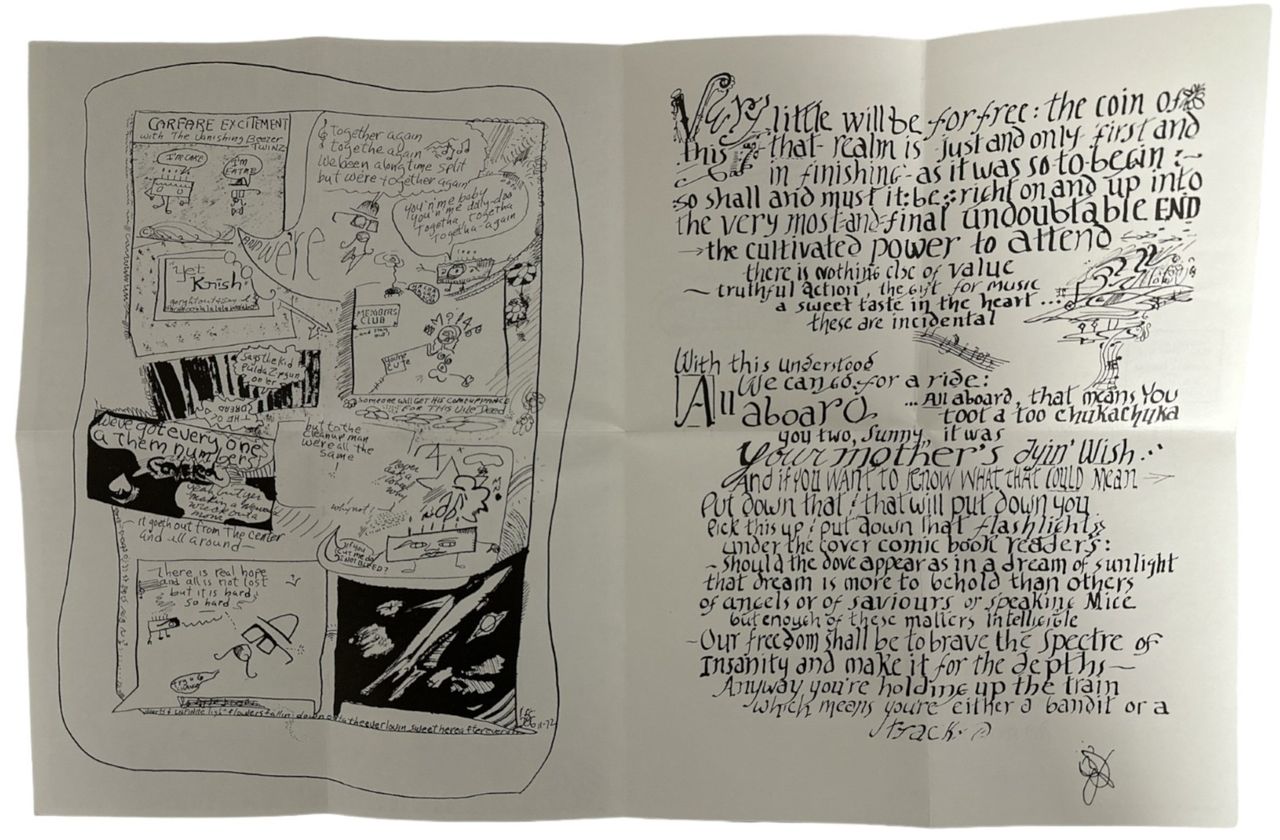 CARFARE EXCITEMENT
with The Vanishing Boozer
TWINZ
I'M CAKE
I'm
EATRE
& together again
togethe again
we been alongtime split
but were together again
you'n'me baby
you'n'me dolly-doo
togetha, togetha
togetha-again
andWe're
"Yet
Knish"
MEMBERS
CLUB
and stay out!
you're
cute
Says the Kid
pulda Zipgun
on er
someone will GET HIS COMEUPPANCE
FOR THIS VILE DEED
THE
DREAD
we've got every one
a Them numbers
COVERED
yeah but yer
makin a
wreck outa
mone
but to the
cleanup man
were all the
same
!
why not!
if you
cut me do
I NOT BLEED?
it goeth out from The center
and all around—
There is real hope
and all is not lost
but it is hard
so hard
flowers fallin' down onta the ever lovin sweet hereafter
Very little will be for free: the coin of
this that realm is just and only first and
in finishing - as it was so to begin :~
so shall and must it: be: right on and up into
the very most-and-final undoubtable END
→ the cultivated power to attend
there is nothing else of value
~ truthful action, the gift for music
a sweet taste in the heart ...
these are incidental
With this understood
We can go for a ride:
All aboard ... All aboard, that means You
toot a too chukachuka
you two, Sunny, it was
Your mother's dyin' Wish..
And if YOU WANT TO KNOW WHAT THAT COULD MEAN →
Put down that! that will put down you
Pick this up! put down that flashlight
under the cover comic book readers:
~ should the dove appear as in a dream of sunlight
that dream is more to behold than others
of angels or of saviours or speaking Mice
but enough of these matters intelligible
~Our freedom shall be to brave the spectre of
Insanity and make it for the depths—
Anyway you're holding up the train
which means you're either a bandit or a
track.